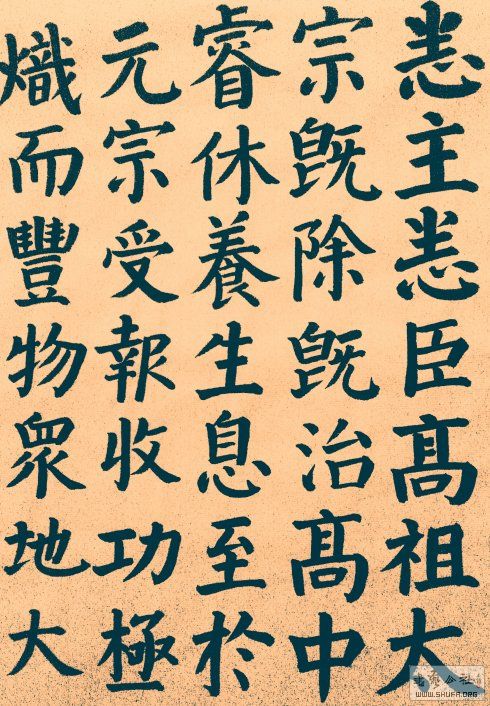 悉主悉臣髙祖太
宗既除既治髙中
睿休養生息至於
元宗受報收功極
熾而豐物衆地大
WWW.SHUFA.ORG